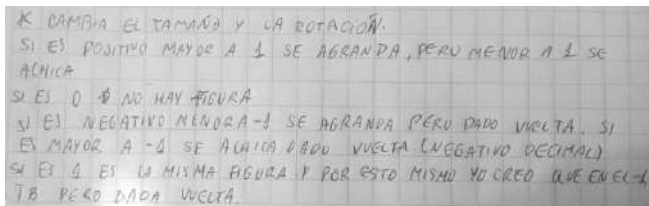 K CAMBIA EL TAMAÑO Y LA ROTACIÓN.
SI ES POSITIVO MAYOR A 1 SE AGRANDA, PERO MENOR A 1 SE
ACHICA
SI ES 0 NO HAY FIGURA
SI ES NEGATIVO MENOR A -1 SE AGRANDA PERO DADO VUELTA. SI
ES MAYOR A -1 SE ACHICA DADO VUELTA (NEGATIVO DECIMAL)
SI ES 1 ES LA MISMA FIGURA Y POR ESTO MISMO YO CREO QUE EN EL -1
TB PERO DADA VUELTA.